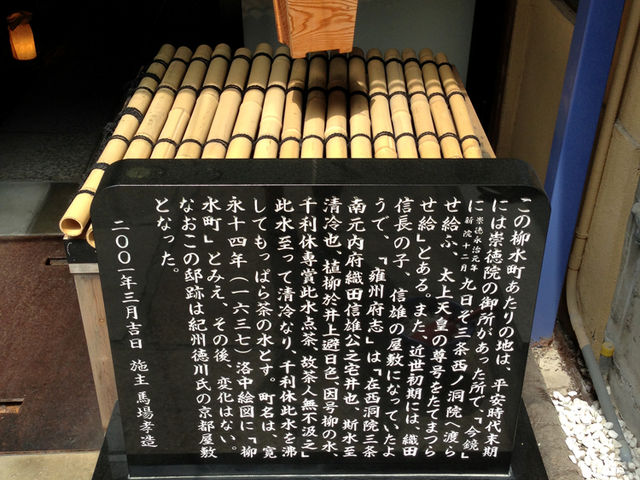 この柳水町あたりの地は、平安時代末期
には崇徳院の御所があった所で、「今鏡」
に崇徳永治元年新院十二月九日ぞ三条西ノ洞院へ渡ら
せ給ふ、太上天皇の尊号をたてまつら
せ給」とある。また、近世初期には、織田
信長の子、信雄の屋敷になっていたよ
うで、「雍州府志」は「在西洞院三条
南元内府織田信雄公之宅井也、斯水至
清冷也、植柳於井上避日色、因号柳の水
千利休専賞此水点茶、故茶人無不汲之」
此水至って清冷なり、千利休此水を沸
してもっぱら茶の水とす。町名は、寛
永十四年(一六三七)洛中絵図に「柳
水町」とみえ、その後、変化はない。
なおこの邸跡は紀州徳川氏の京都屋敷
となった。
二〇〇一年三月吉日 施主 馬場孝造